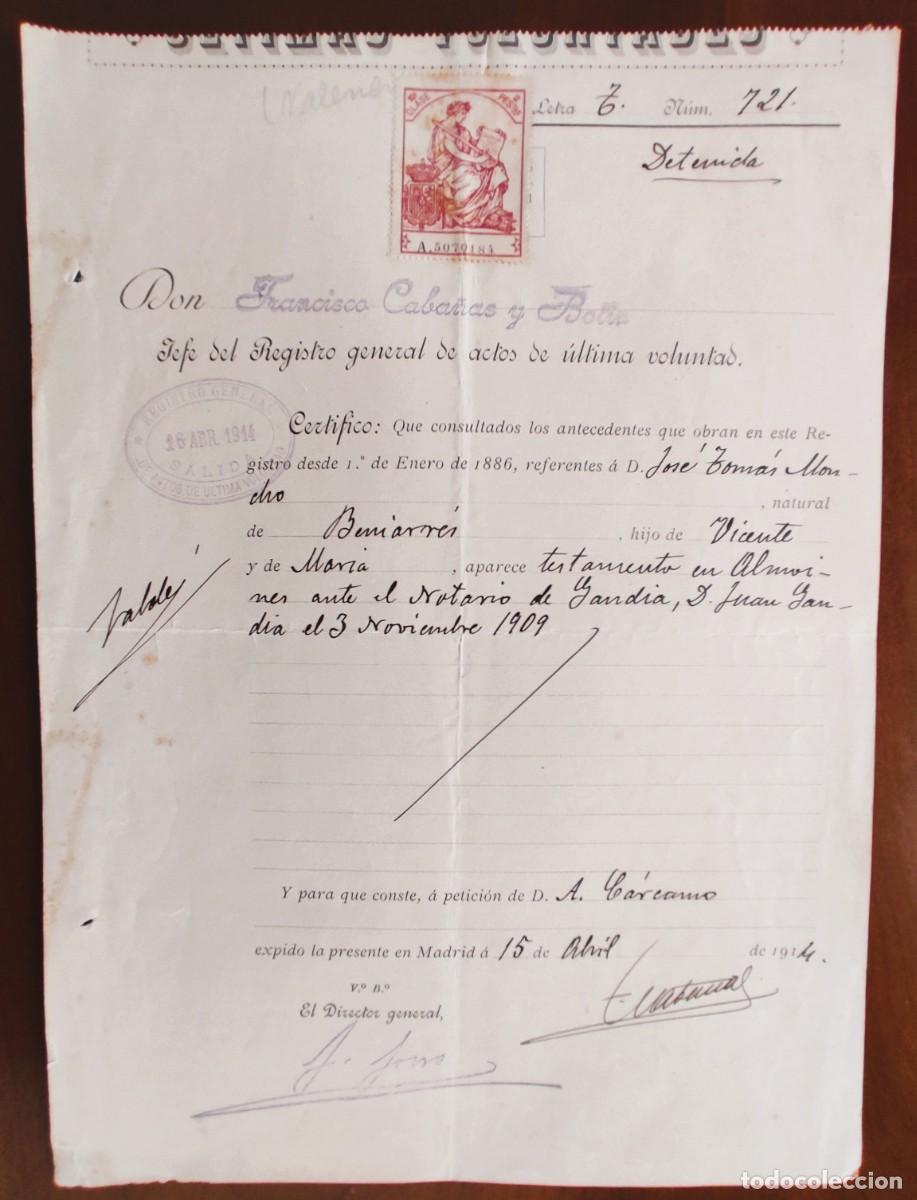 ÚLTIMAS VOLUNTADES
(Valencia
1ª CLASE 2 PESTAS
Letra T. Núm. 721.
Detenida
A.5070184
Don Francisco Cabañas y Botín
Jefe del Registro general de actos de última voluntad.
REGISTRO GENERAL
16 ABR. 1914
SALIDA
DE ACTOS DE ÚLTIMA VOLUNTAD
Certifico: Que consultados los antecedentes que obran en este Re-
gistro desde 1.º de Enero de 1886, referentes á D. José Tomás Mon-
cho , natural
de Beniarrés , hijo de Vicente
y de María , aparece testamento en Almoi-
nes ante el Notario de Gandia, D. Juan Gan-
dia el 3 Noviembre 1909
Y para que conste, á petición de D. A. Cárcamo
expido la presente en Madrid á 15 de Abril de 1914.
V.º B.º
El Director general,
todocoleccion